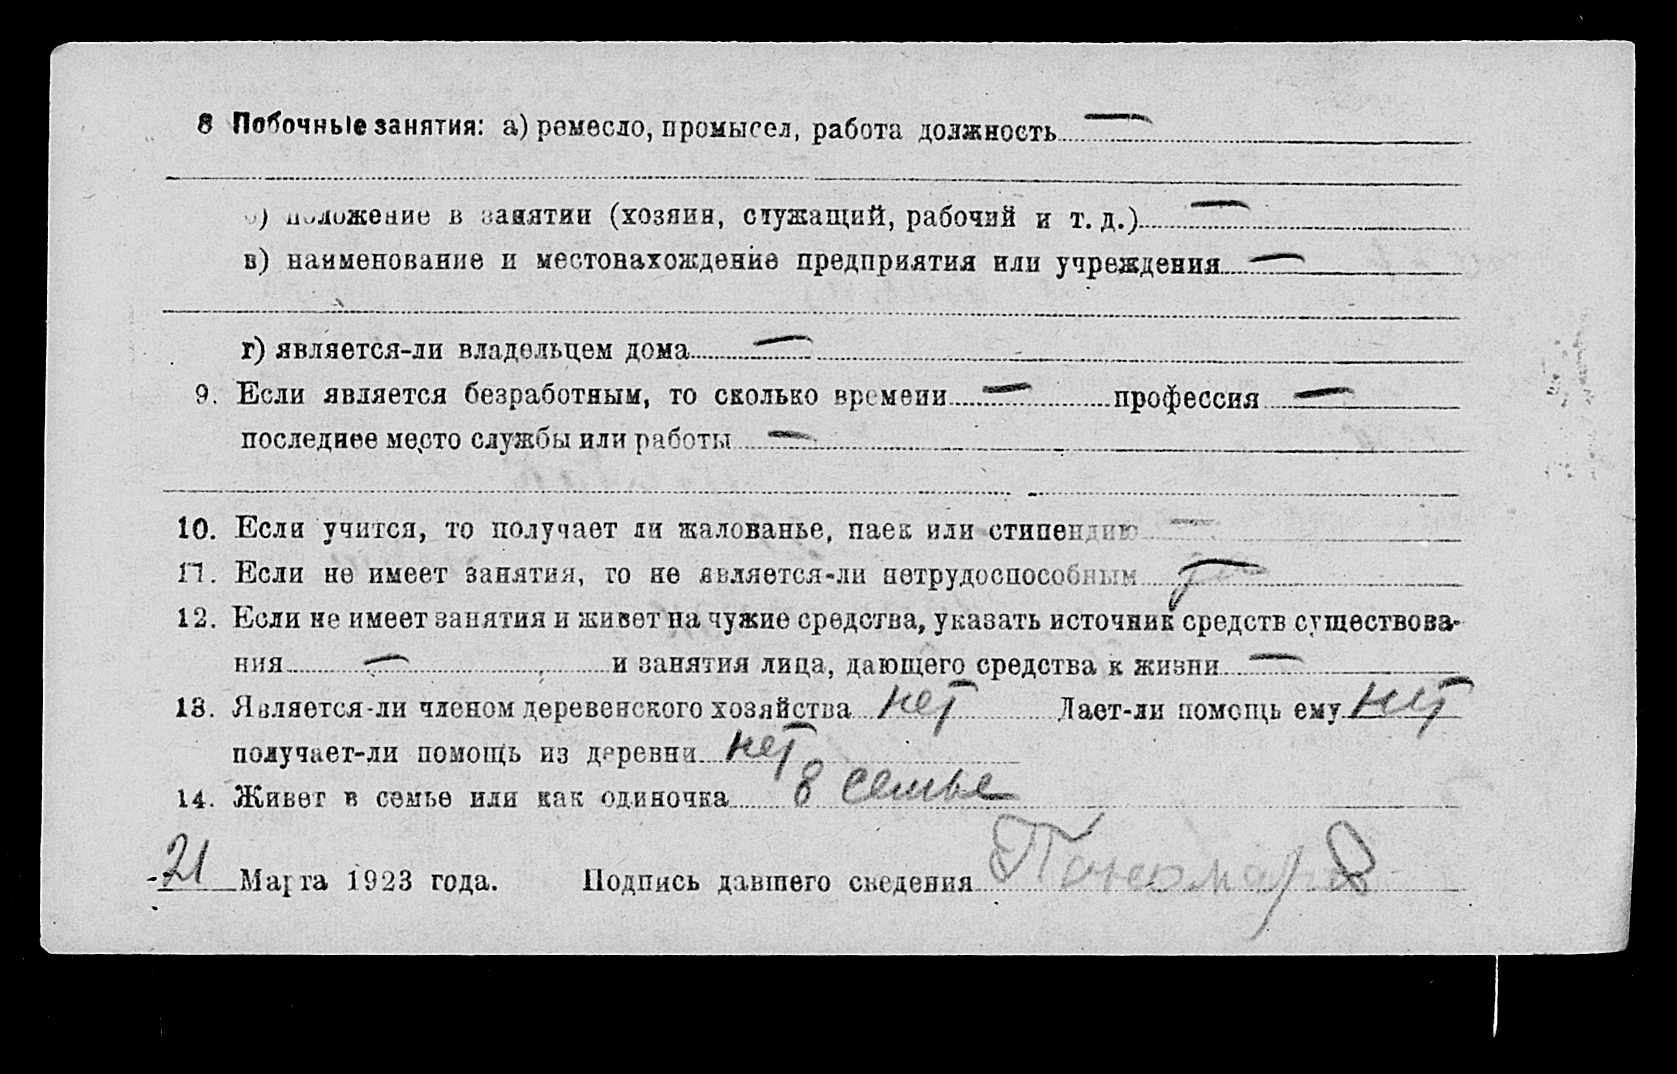 8 Побочные занятия: а) ремесло, промысел, работа должность —
б) положение в занятии (хозяин, служащий, рабочий и т. д.) —
в) наименование и местонахождение предприятия или учреждения —
г) является-ли владельцем дома —
9. Если является безработным, то сколько времени — профессия —
последнее место службы или работы —
10. Если учится, то получает ли жалованье, паек или стипендию —
11. Если не имеет занятия, то не является-ли нетрудоспособным
12. Если не имеет занятия и живет на чужие средства, указать источник средств существова-
ния — и занятия лица, дающего средства к жизни —
13. Является-ли членом деревенского хозяйства нет Дает-ли помощь ему нет
получает-ли помощь из деревни нет
14. Живет в семье или как одиночка в семье
21 Марта 1923 года. Подпись давшего сведения